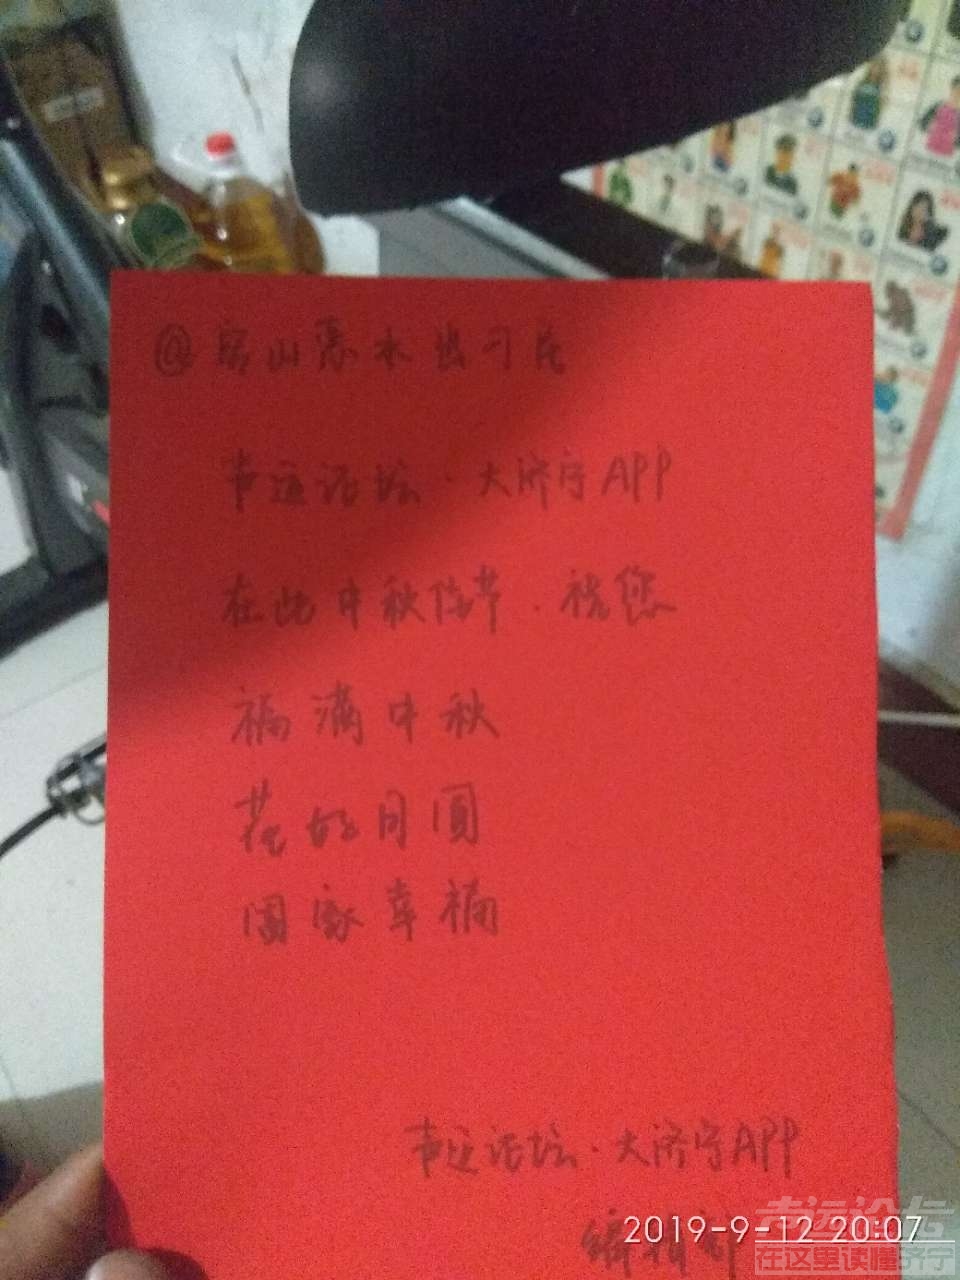 @
声远论坛·大济宁APP
在此中秋佳节.祝您
福满中秋
花好月圆
阖家幸福
声远论坛·大济宁APP
编辑部
2019-9-12 20:07
声远论坛
在这里读懂济宁